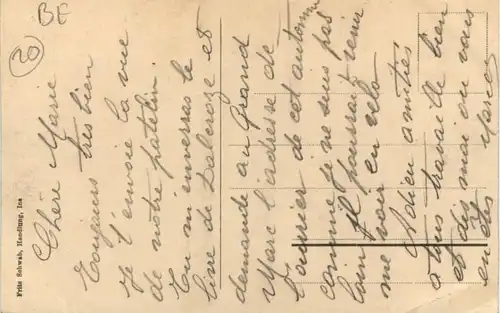 BE
20
Chère Marie
Toujours très bien
Je t'envoie la vue
de notre patelin.
Tu m'enverras le
livre de Dalcroze et
demande au Grand
Marc l'adresse de
de cet automne
comme je ne suis pas
loin il pourrait venir
me voir en vélo
Adieu amitiés
à tous travaille bien
et dis moi où vous
en êtes
Fritz Schwab, Handlung, Ins